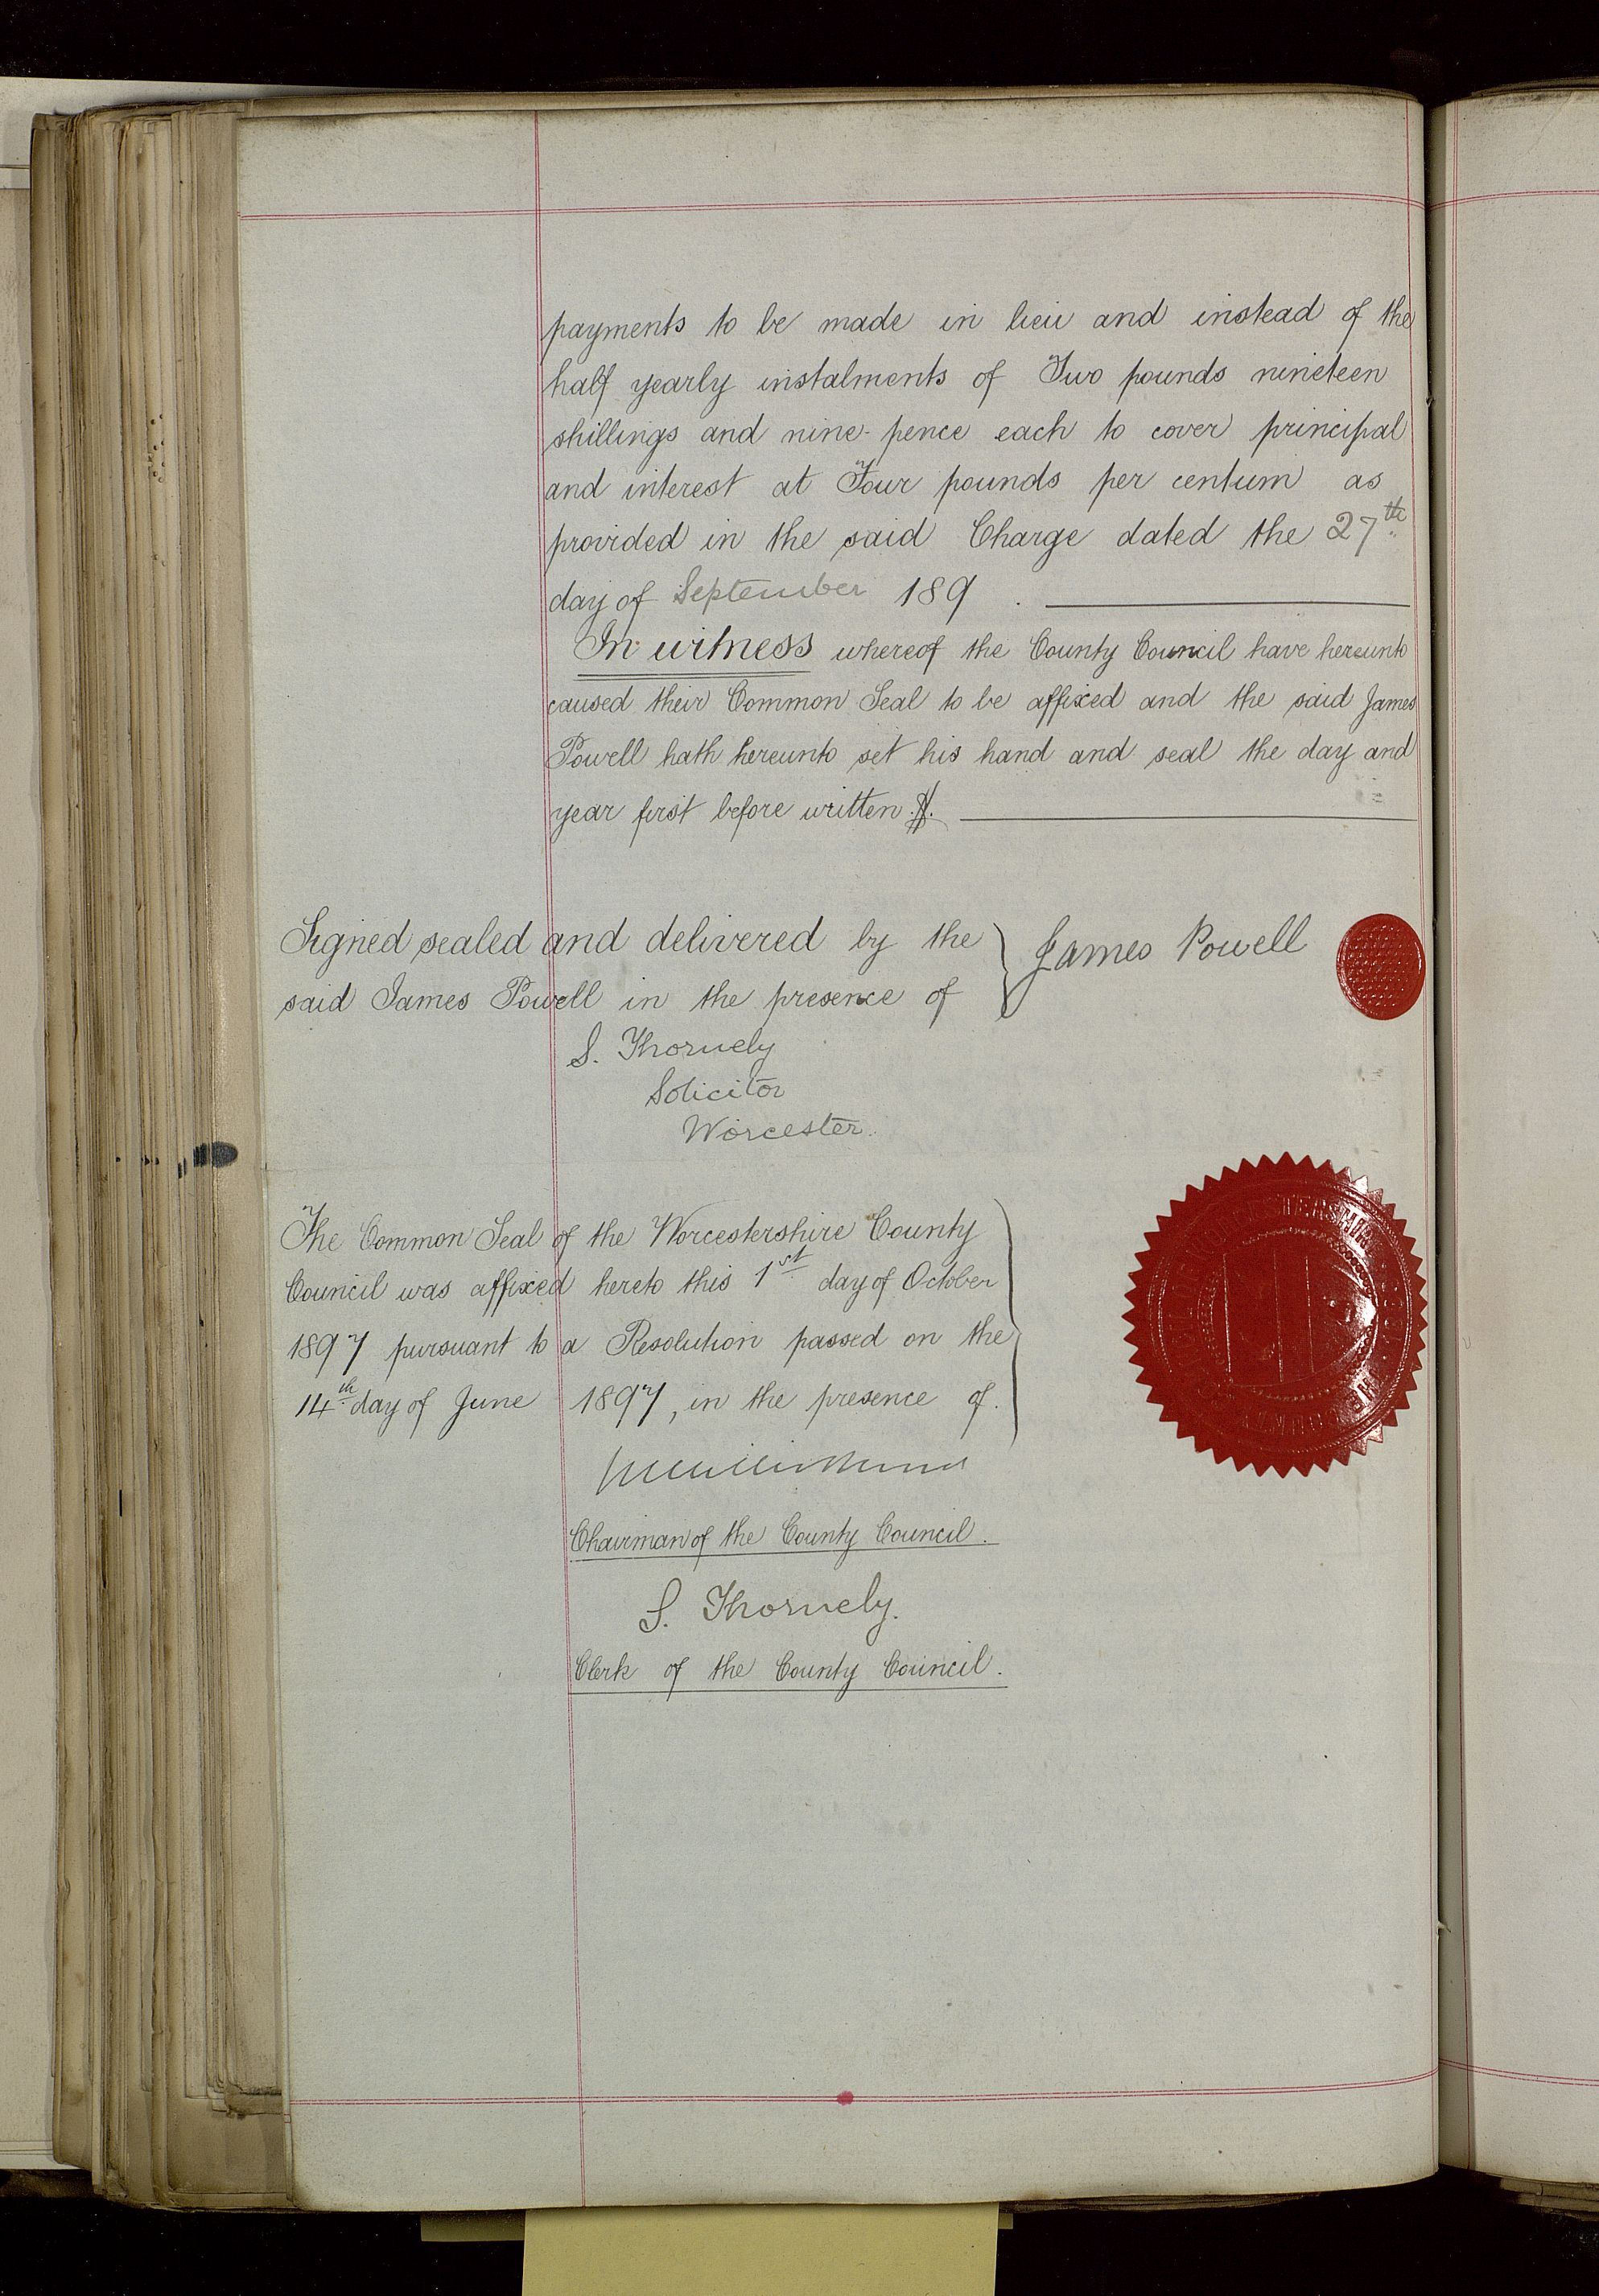 payments to be made in lieu and instead of the
half yearly instalments of Two pounds nineteen
shillings and nine-pence each to cover principal
and interest at Four pounds per centum as
provided in the said Charge dated the 27th
day of September 189 .
In witness whereof the County Council have hereunto
caused their Common Seal to be affixed and the said James
Powell hath hereunto set his hand and seal the day and
year first before written.
Signed sealed and delivered by the
said James Powell in the presence of
James Powell
S. Thornely
Solicitor
Worcester.
The Common Seal of the Worcestershire County
Council was affixed hereto this 1st day of October
1897 pursuant to a Resolution passed on the
14th day of June 1897, in the presence of.
Chairman of the County Council.
S. Thornely.
Clerk of the County Council.